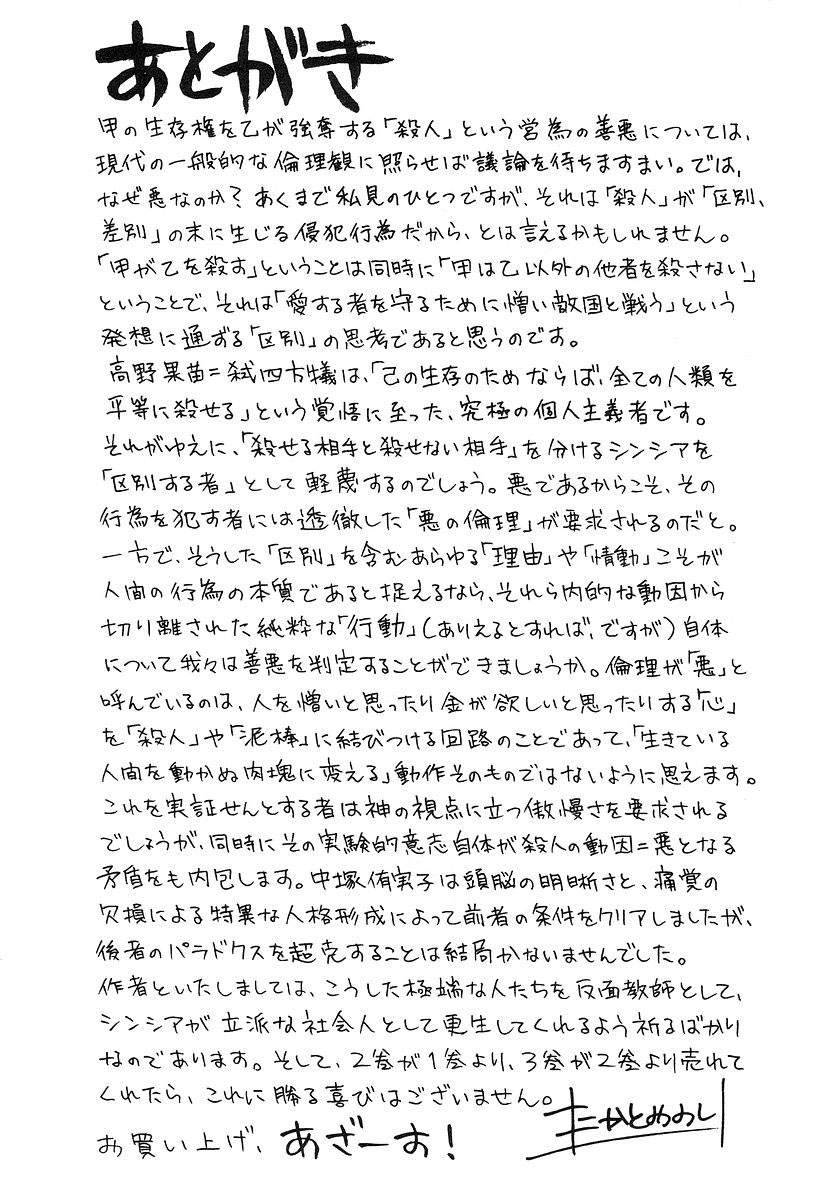 あとがき
甲の生存権を乙が強奪する「殺人」という営為の善悪については、
現代の一般的な倫理観に照らせば議論を待ちますまい。では、
なぜ悪なのか？あくまで私見のひとつですが、それは「殺人」が「区別、
差別」の末に生じる侵犯行為だから、とは言えるかもしれません。
「甲が乙を殺す」ということは同時に「甲は乙以外の他者を殺さない」
ということで、それは「愛する者を守るために憎い敵国と戦う」という
発想に通ずる「区別」の思考であると思うのです。
高野果苗＝弑四方犠は、「己の生存のためならば、全ての人類を
平等に殺せる」という覚悟に至った、究極の個人主義者です。
それがゆえに、「殺せる相手と殺せない相手」を分けるシンシアを
「区別する者」として軽蔑するのでしょう。悪であるからこそ、その
行為を犯す者には透徹した「悪の倫理」が要求されるのだと。
一方で、そうした「区別」を含むあらゆる「理由」や「情動」こそが
人間の行為の本質であると捉えるなら、それら内的な動因から
切り離された純粋な「行動」（ありえるとすれば、ですが）自体
について我々は善悪を判定することができましょうか。倫理が「悪」と
呼んでいるのは、人を憎いと思ったり金が欲しいと思ったりする「心」
を「殺人」や「泥棒」に結びつける回路のことであって、「生きている
人間を動かぬ肉塊に変える」動作そのものではないように思えます。
これを実証せんとする者は神の視点に立つ傲慢さを要求される
でしょうが、同時にその実験的意志自体が殺人の動因＝悪となる
矛盾をも内包します。中塚侑実子は頭脳の明晰さと、痛覚の
欠損による特異な人格形成によって前者の条件をクリアしましたが、
後者のパラドクスを超克することは結局かないませんでした。
作者といたしましては、こうした極端な人たちを反面教師として、
シンシアが立派な社会人として更生してくれるよう祈るばかり
なのであります。そして、２巻が１巻より、３巻が２巻より売れて
くれたら、これに勝る喜びはございません。
お買い上げ、あざーす！
かとめめし